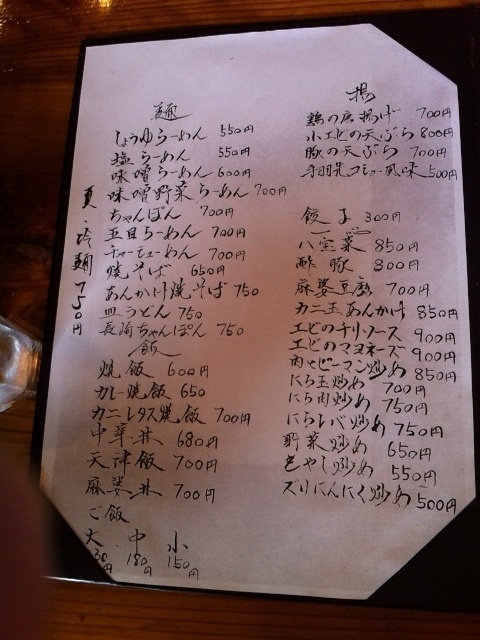 麺
しょうゆらーめん 550円
塩らーめん 550円
味噌らーめん 600円
味噌野菜らーめん 700円
ちゃんぽん 700円
五目らーめん 700円
チャーシューめん 700円
焼そば 650円
あんかけ焼そば 750
皿うどん 750
長崎ちゃんぽん 750
夏・冷麺 750円
飯
焼飯 600円
カレー焼飯 650
カニレタス焼飯 700円
中華丼 680円
天津飯 700円
麻婆丼 700円
ご飯
大 中 小
180円 150円
揚
鶏の唐揚げ 700円
小エビの天ぷら 800円
豚の天ぷら 700円
手羽先コショー風味 500円
餃子 300円
八宝菜 850円
酢豚 800円
麻婆豆腐 700円
カニ玉あんかけ 850円
エビのチリソース 900円
エビのマヨネーズ 900円
肉とピーマン炒め 850円
にら玉炒め 700円
にら肉炒め 750円
にらレバ炒め 750円
野菜炒め 650円
もやし炒め 550円
ズリにんにく炒め 500円